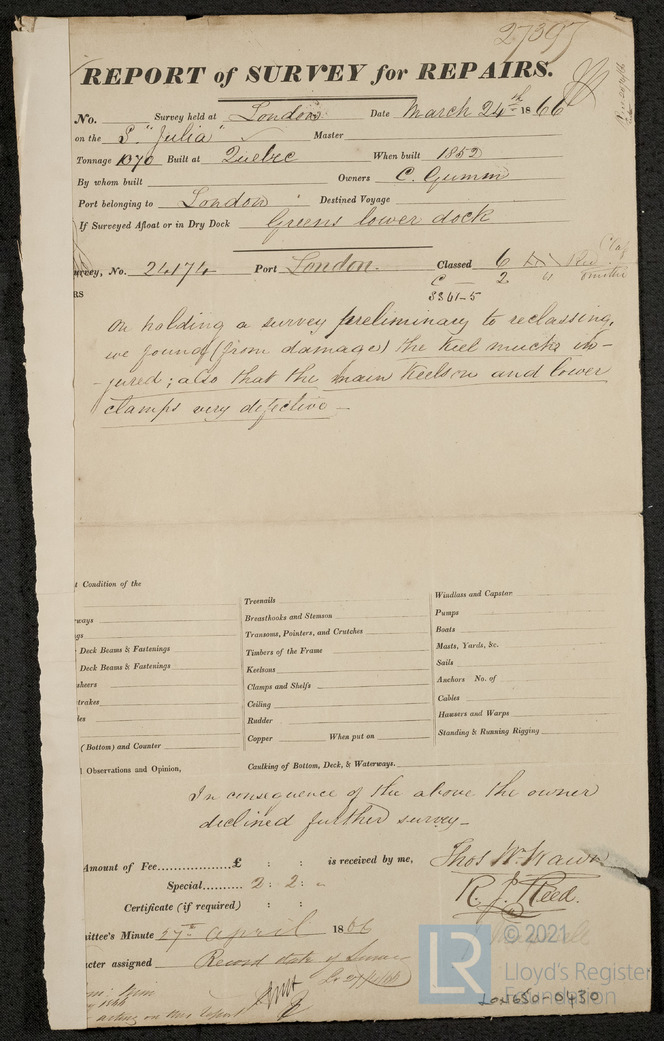 27397
REPORT of SURVEY for REPAIRS.
No. Survey held at London Date March 24th 1866
on the S. "Julia" Master
Tonnage 1070 Built at Quebec When built 1852
By whom built Owners C. Gumm
Port belonging to London Destined Voyage
If Surveyed Afloat or in Dry Dock Greens lower dock
urvey, No. 24174 Port London. Classed 6
C 2
RS 3361-5
On holding a survey preliminary to reclassing,
we found (from damage) the keel much in-
-jured; also that the main keelson and lower
clamps very defective -
t Condition of the
rways
gs
Deck Beams & Fastenings
Deck Beams & Fastenings
sheers
trakes
les
(Bottom) and Counter
Treenails
Breasthooks and Stemson
Transoms, Pointers, and Crutches
Timbers of the Frame
Keelsons
Clamps and Shelfs
Ceiling
Rudder
Copper When put on
Windlass and Capstan
Pumps
Boats
Masts, Yards, &c.
Sails
Anchors No. of
Cables
Hawsers and Warps
Standing & Running Rigging
l Observations and Opinion, Caulking of Bottom, Deck, & Waterways.
In consequence of the above the owner
declined further survey -
Amount of Fee £ : : is received by me,
Special 2 : 2 : "
Certificate (if required) : :
Thos W. Wawn
R. J. Reed.
mittee's Minute 27th April 1866
cter assigned Record date of Survey
acting on this Report
© 2021
LR
Lloyd's Register
Foundation
LON650-0430